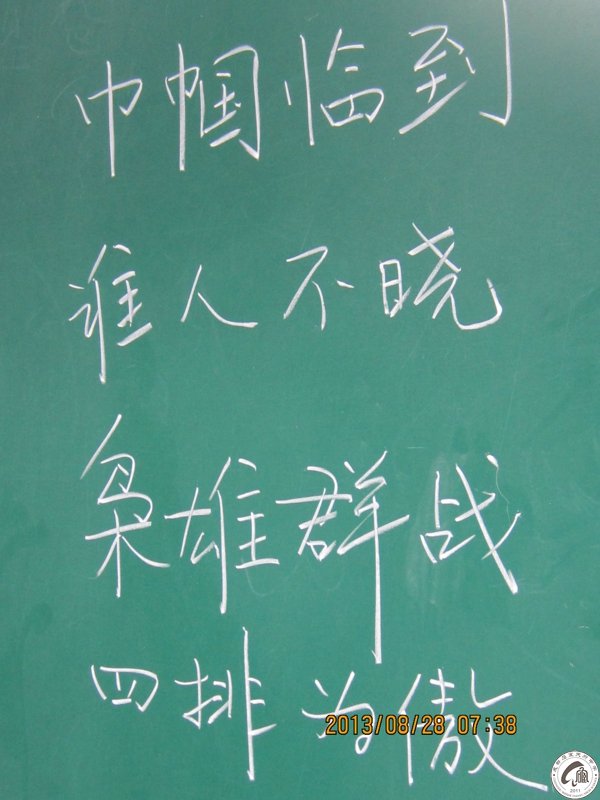 巾帼临到
谁人不晓
枭雄群战
四排为傲
2013/08/28 07:38
2011